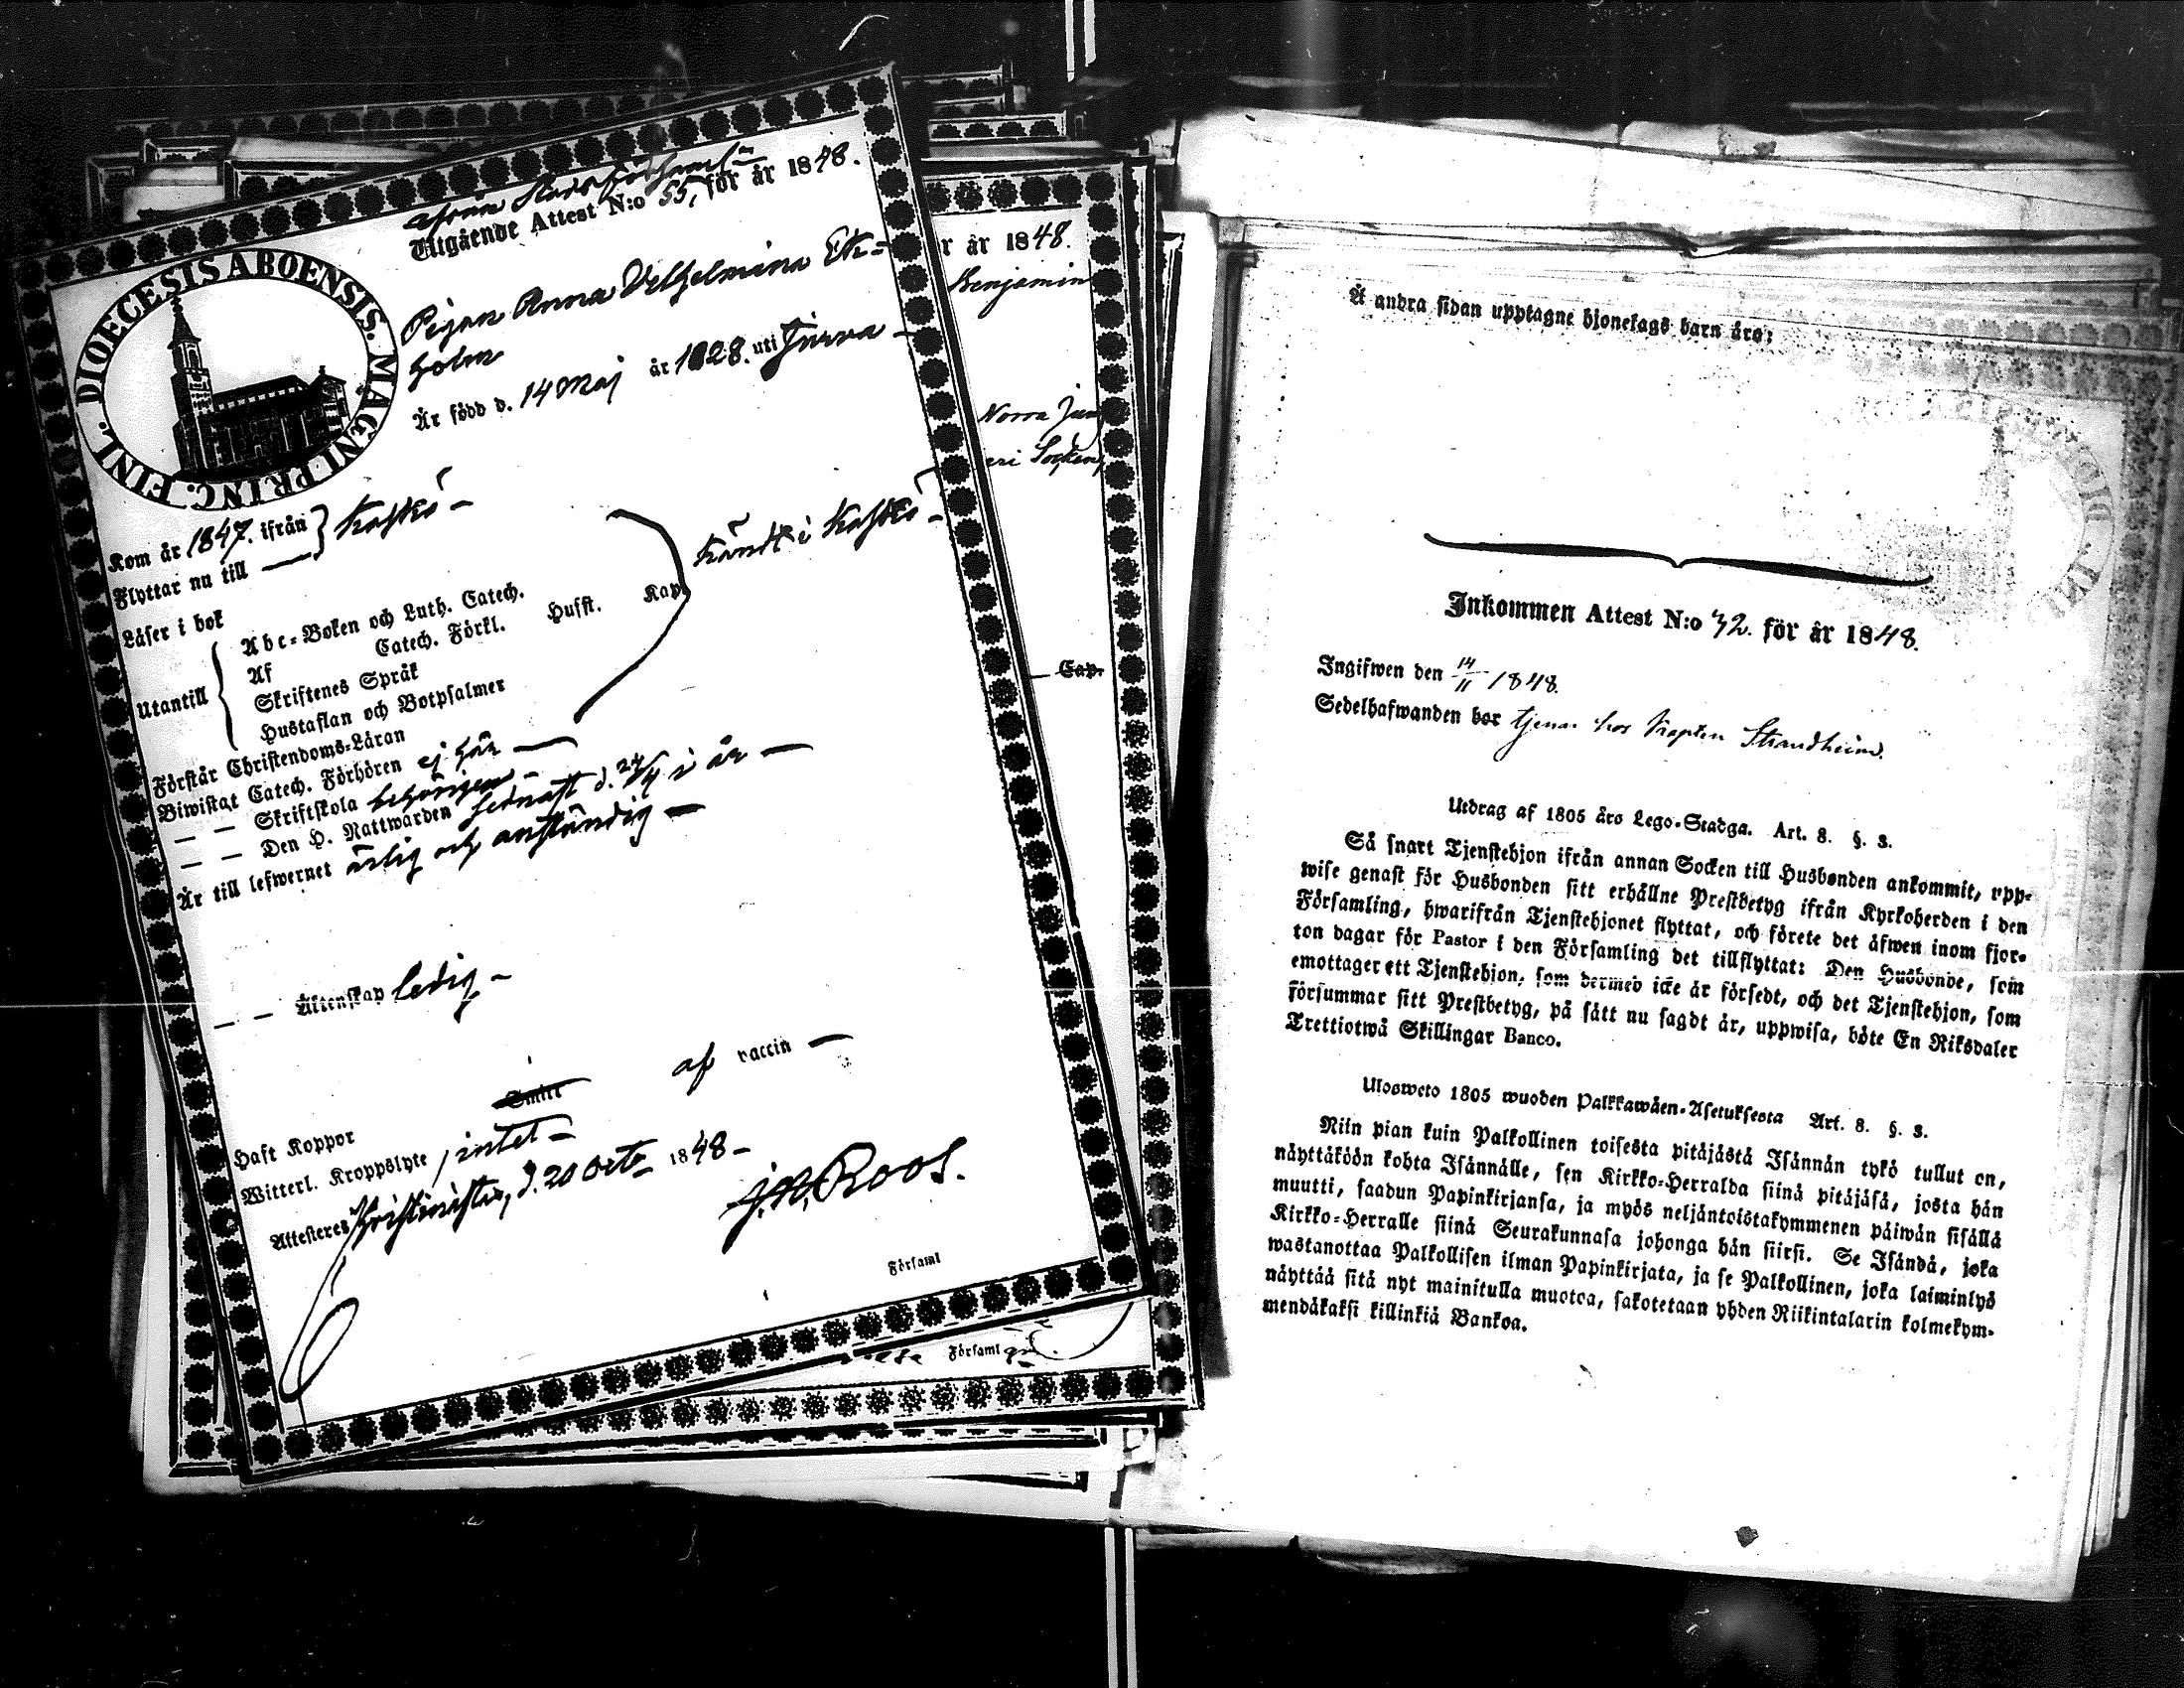 ifrån Stadsförsaml:n
Utgående Attest N:o 55, för år 1848.
DIOECESIS ABOENSIS. MAGNI PRINC. FINL.
Pigan Anna Vilhelmina Ek=
holm
Är född d. 14 Maj år 1828. uti Jurva
Kom år 1847. ifrån } Kaskö
Flyttar nu till
Läser i bok
Utantill
Abc-Boken och Luth. Catech.
Af Catech. Förkl. Hufst. Kap.
Skriftenes Språk
Hustaflan och Botpsalmer
kändt i Kaskö
Förstår Christendoms-Läran
Biwistat Catech. Förhören ej här
— — Skriftskola behörigen
— — Den H. Nattwarden sednast d. 24/4 i år
Är till lefwernet ärlig och anständig
— — Äktenskap ledig
Haft Koppor af vaccin
Witterl. Kroppslyte intet
Attesteras Christinestad, d. 20 Octo 1848
J. M. Roos.
Församl
r år 1848.
Benjamin
Norra
Socken
Cap.
Församl
Å andra sidan upptagne hjonelags barn äro:
Inkommen Attest N:o 32. för år 1848.
Ingifwen den 14/11 1848.
Sedelhafwanden bor tjenar hos Kapten Strandheim.
Utdrag af 1805 års Lego-Stadga. Art. 8. §. 3.
Så snart Tjenstehjon ifrån annan Socken till Husbonden ankommit, upp-
wise genast för Husbonden sitt erhållne Prestbetyg ifrån Kyrkoherden i den
Församling, hwarifrån Tjenstehjonet flyttat, och förete det äfwen inom fjor-
ton dagar för Pastor i den Församling det tillflyttat: Den Husbonde, som
emottager ett Tjenstehjon, som dermed icke är försedt, och det Tjenstehjon, som
försummar sitt Prestbetyg, på sätt nu sagdt är, uppwisa, böte En Riksdaler
Trettiotwå Skillingar Banco.
Ulosweto 1805 wuoden Palkkawäen-Asetuksesta Art. 8. §. 3.
Niin pian kuin Palkollinen toisesta pitäjästä Isännän tykö tullut on,
näyttäköön kohta Isännälle, sen Kirkko-Herralda siinä pitäjäsä, josta hän
muutti, saadun Papinkirjansa, ja myös neljäntoistakymmenen päiwän sisällä
Kirkko-Herralle siinä Seurakunnasa johonga hän siirsi. Se Isändä, joka
wastanottaa Palkollisen ilman Papinkirjata, ja se Palkollinen, joka laiminlyö
näyttää sitä nyt mainitulla muotoa, sakotetaan yhden Riikintalarin kolmekym-
mendäkaksi killinkiä Bankoa.